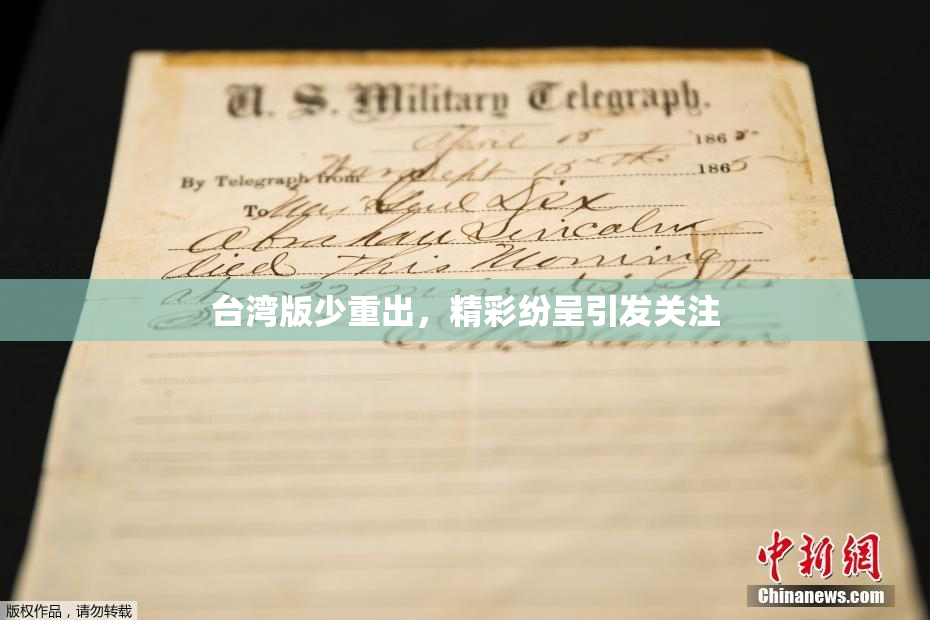 U. S. Military Telegraph.
April 15 1865
By Telegraph from War Dept 15th 1865
To Maj Genl Dix
Abraham Lincoln
died This Morning
at 22 minutes after
台湾版少重出，精彩纷呈引发关注
中新网
Chinanews.com
版权作品，请勿转载